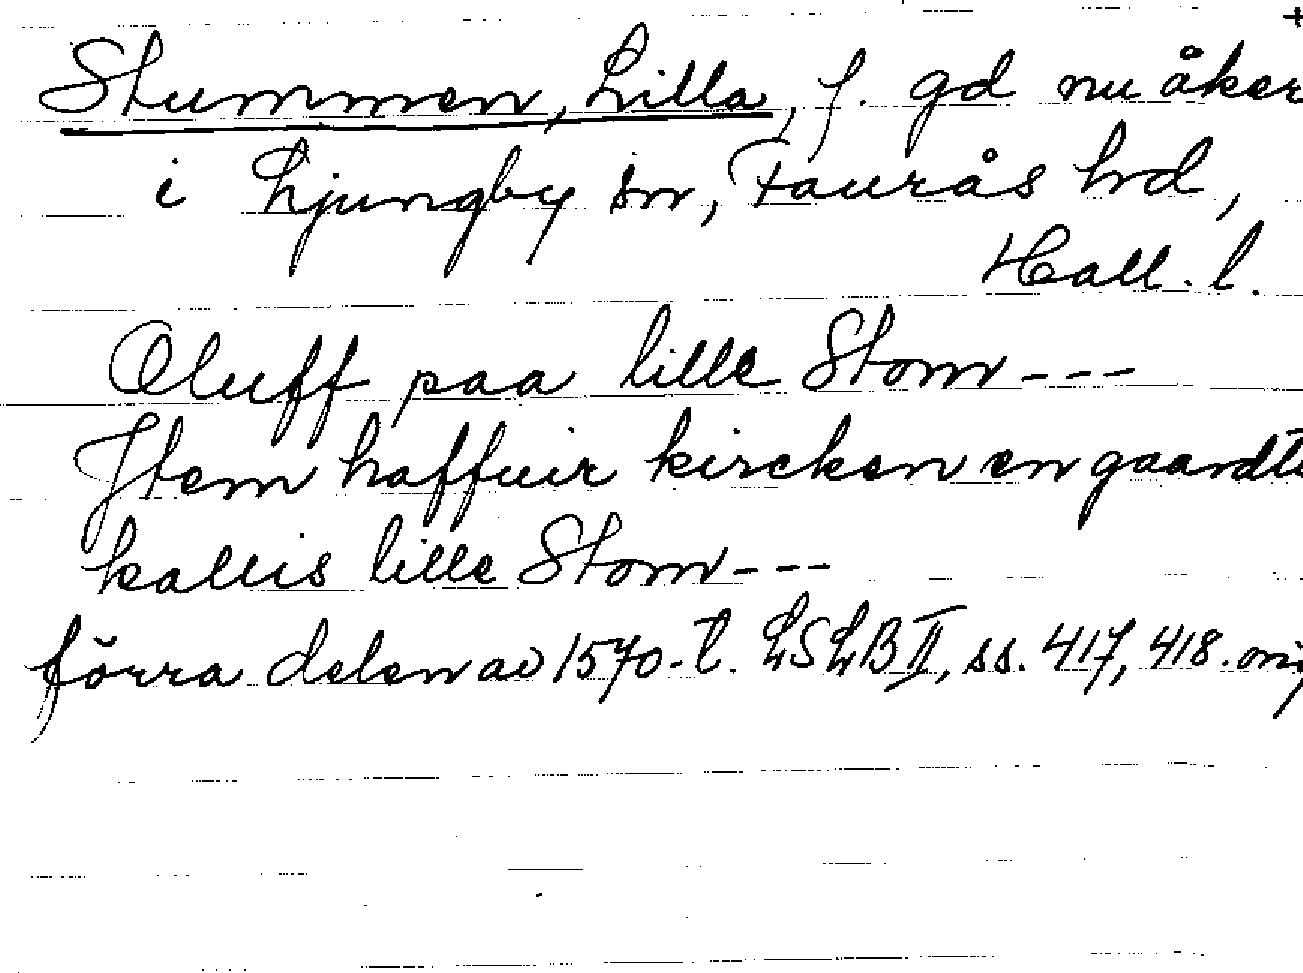 +
Stummen, Lilla, f. gd nu åker
i Ljungby sn, Faurås hd,
Hall. l.
Oluff paa lille Stom ---
Jtem haffuir kircken en gaardt
kallis lille Stom ---
förra delen av 1570-t. LSLB II, ss. 417, 418.